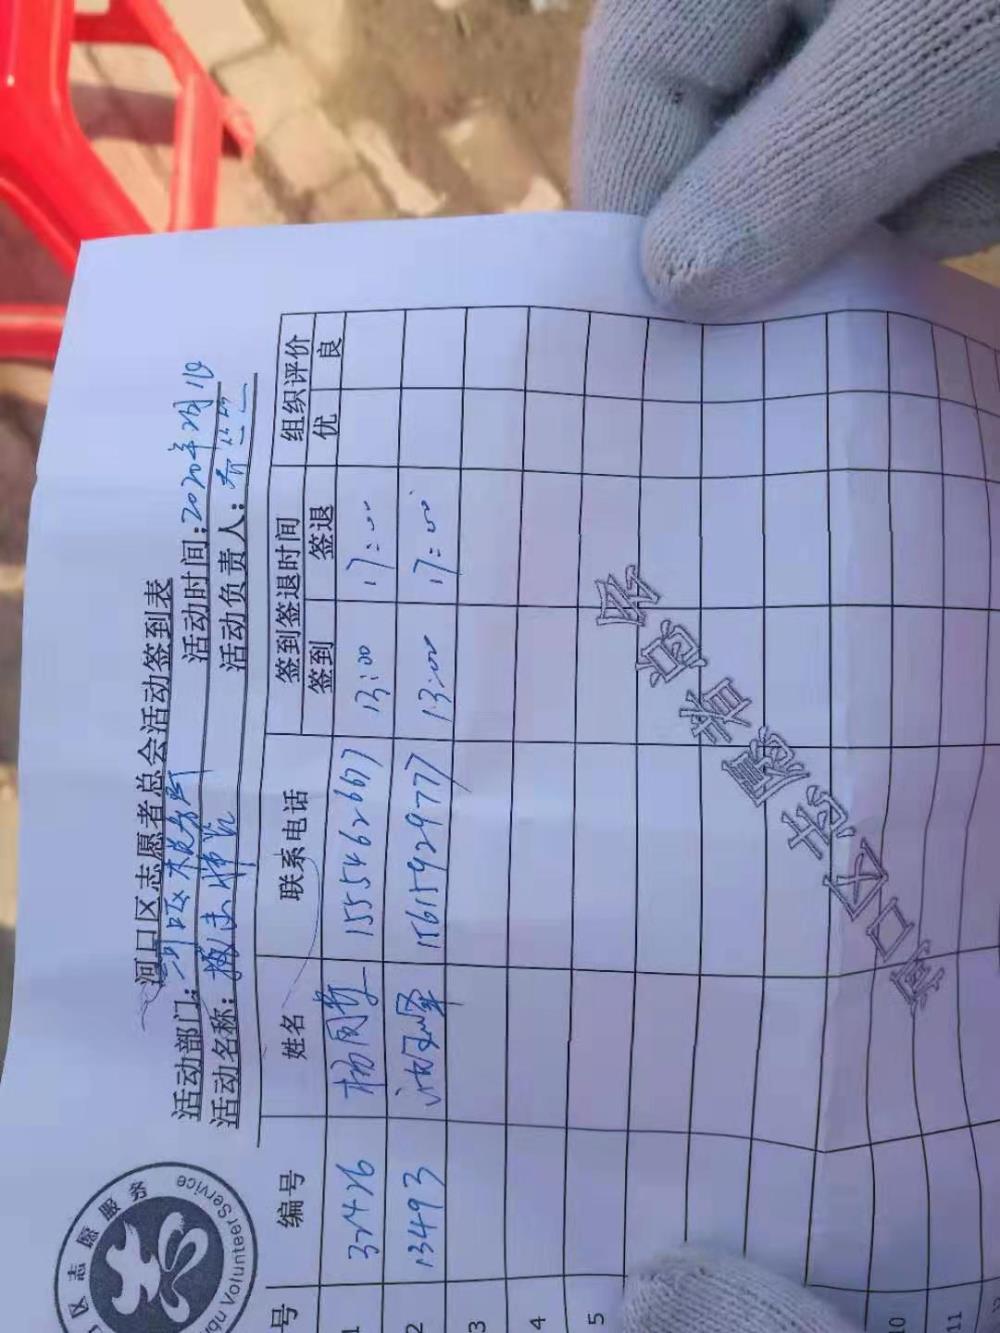 区志愿服务
gu Volunteer Service
河口区志愿者总会活动签到表
活动部门： 活动时间：2020年2月1日
活动名称： 活动负责人：
号 编号 姓名 联系电话 签到签退时间 组织评价
签到 签退 优 良
1 15554626677 13:00 17:00
2 13493 15615929777 13:00 17:00
3
4
5
10
11
河口区志愿者总会